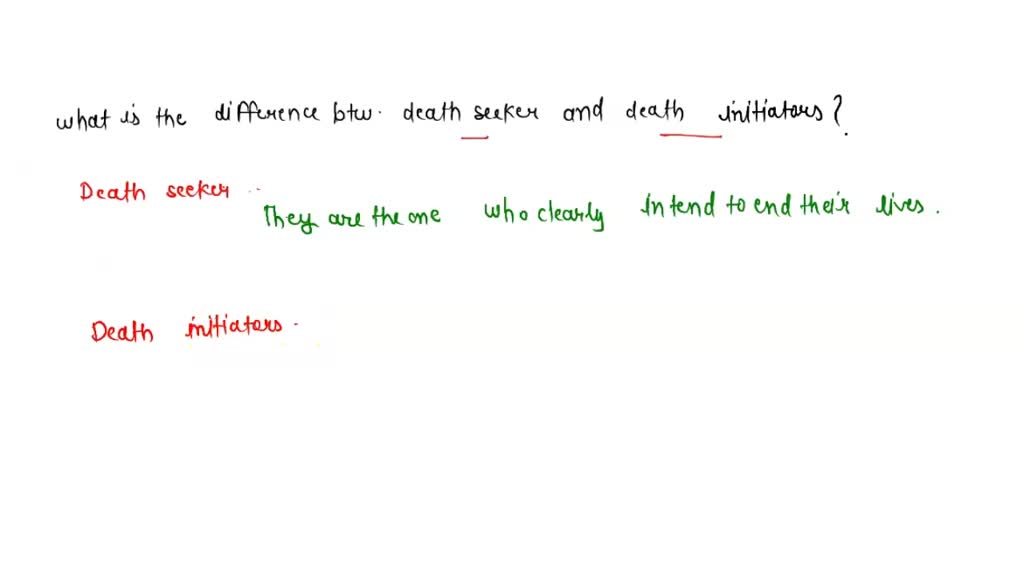 what is the difference btw. death seeker and death initiators?
Death seeker ..
They are the one who clearly intend to end their lives.
Death initiators.